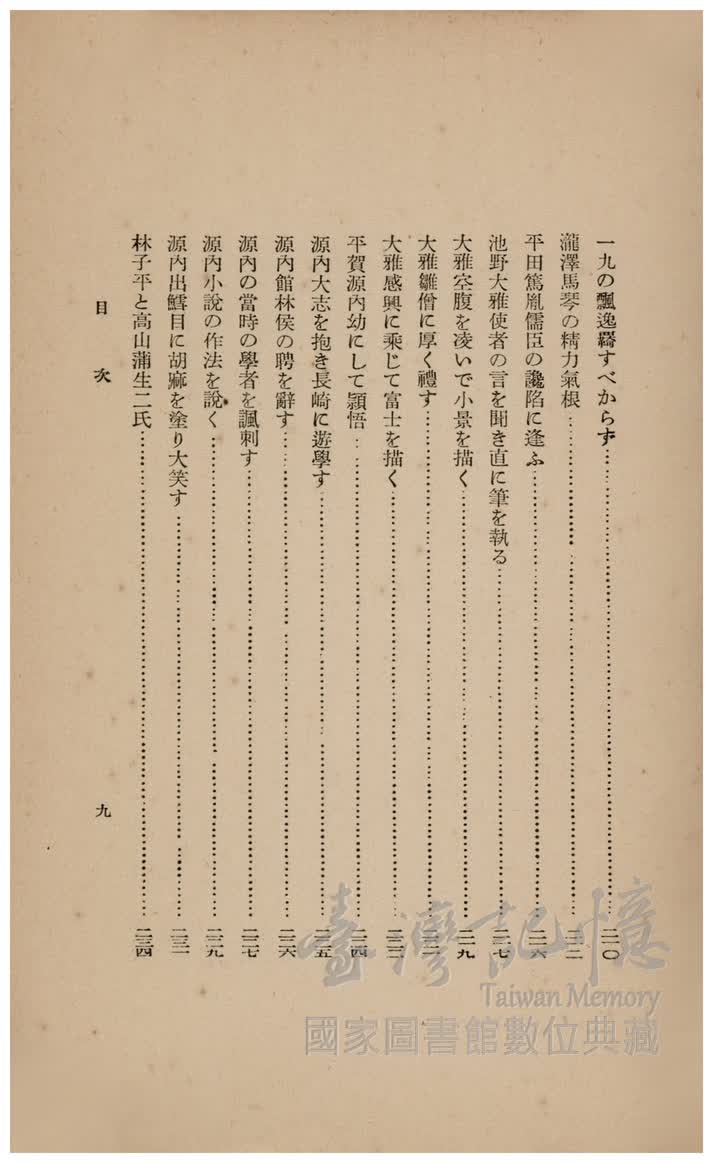 一九の飄逸羈すべからず……二一〇
瀧澤馬琴の精力氣根……二一二
平田篤胤儒臣の讒陷に逢ふ……二一六
池野大雅使者の言を聞き直に筆を執る……二一七
大雅空腹を凌いで小景を描く……二一九
大雅雛僧に厚く禮す……二二一
大雅感興に乘じて富士を描く……
平賀源內幼にして頴悟……二二四
源內大志を抱き長崎に遊學す……二二五
源內館林侯の聘を辭す……二二六
源內の當時の學者を諷刺す……二二七
源內小說の作法を說く……二二九
源內出鱈目に胡麻を塗り大笑す……二三一
林子平と高山蒲生二氏……二三四
目次
九
臺灣記憶
Taiwan Memory
國家圖書館數位典藏